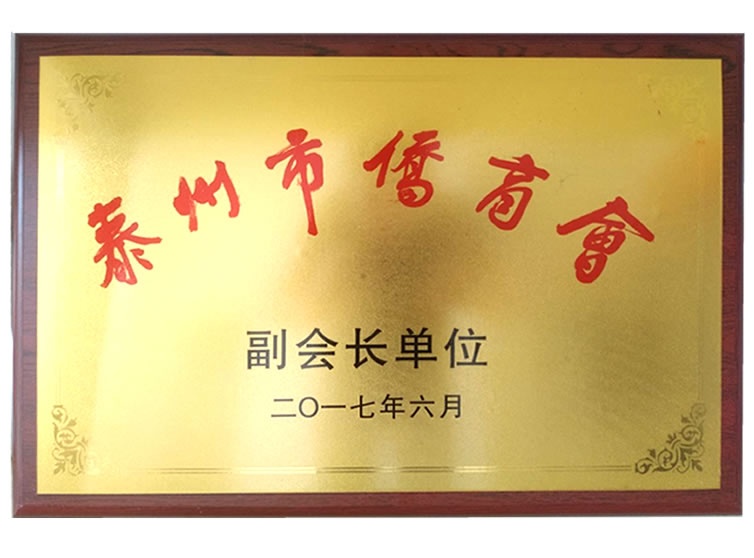 泰州市僑商會
副会长单位
二〇一七年六月